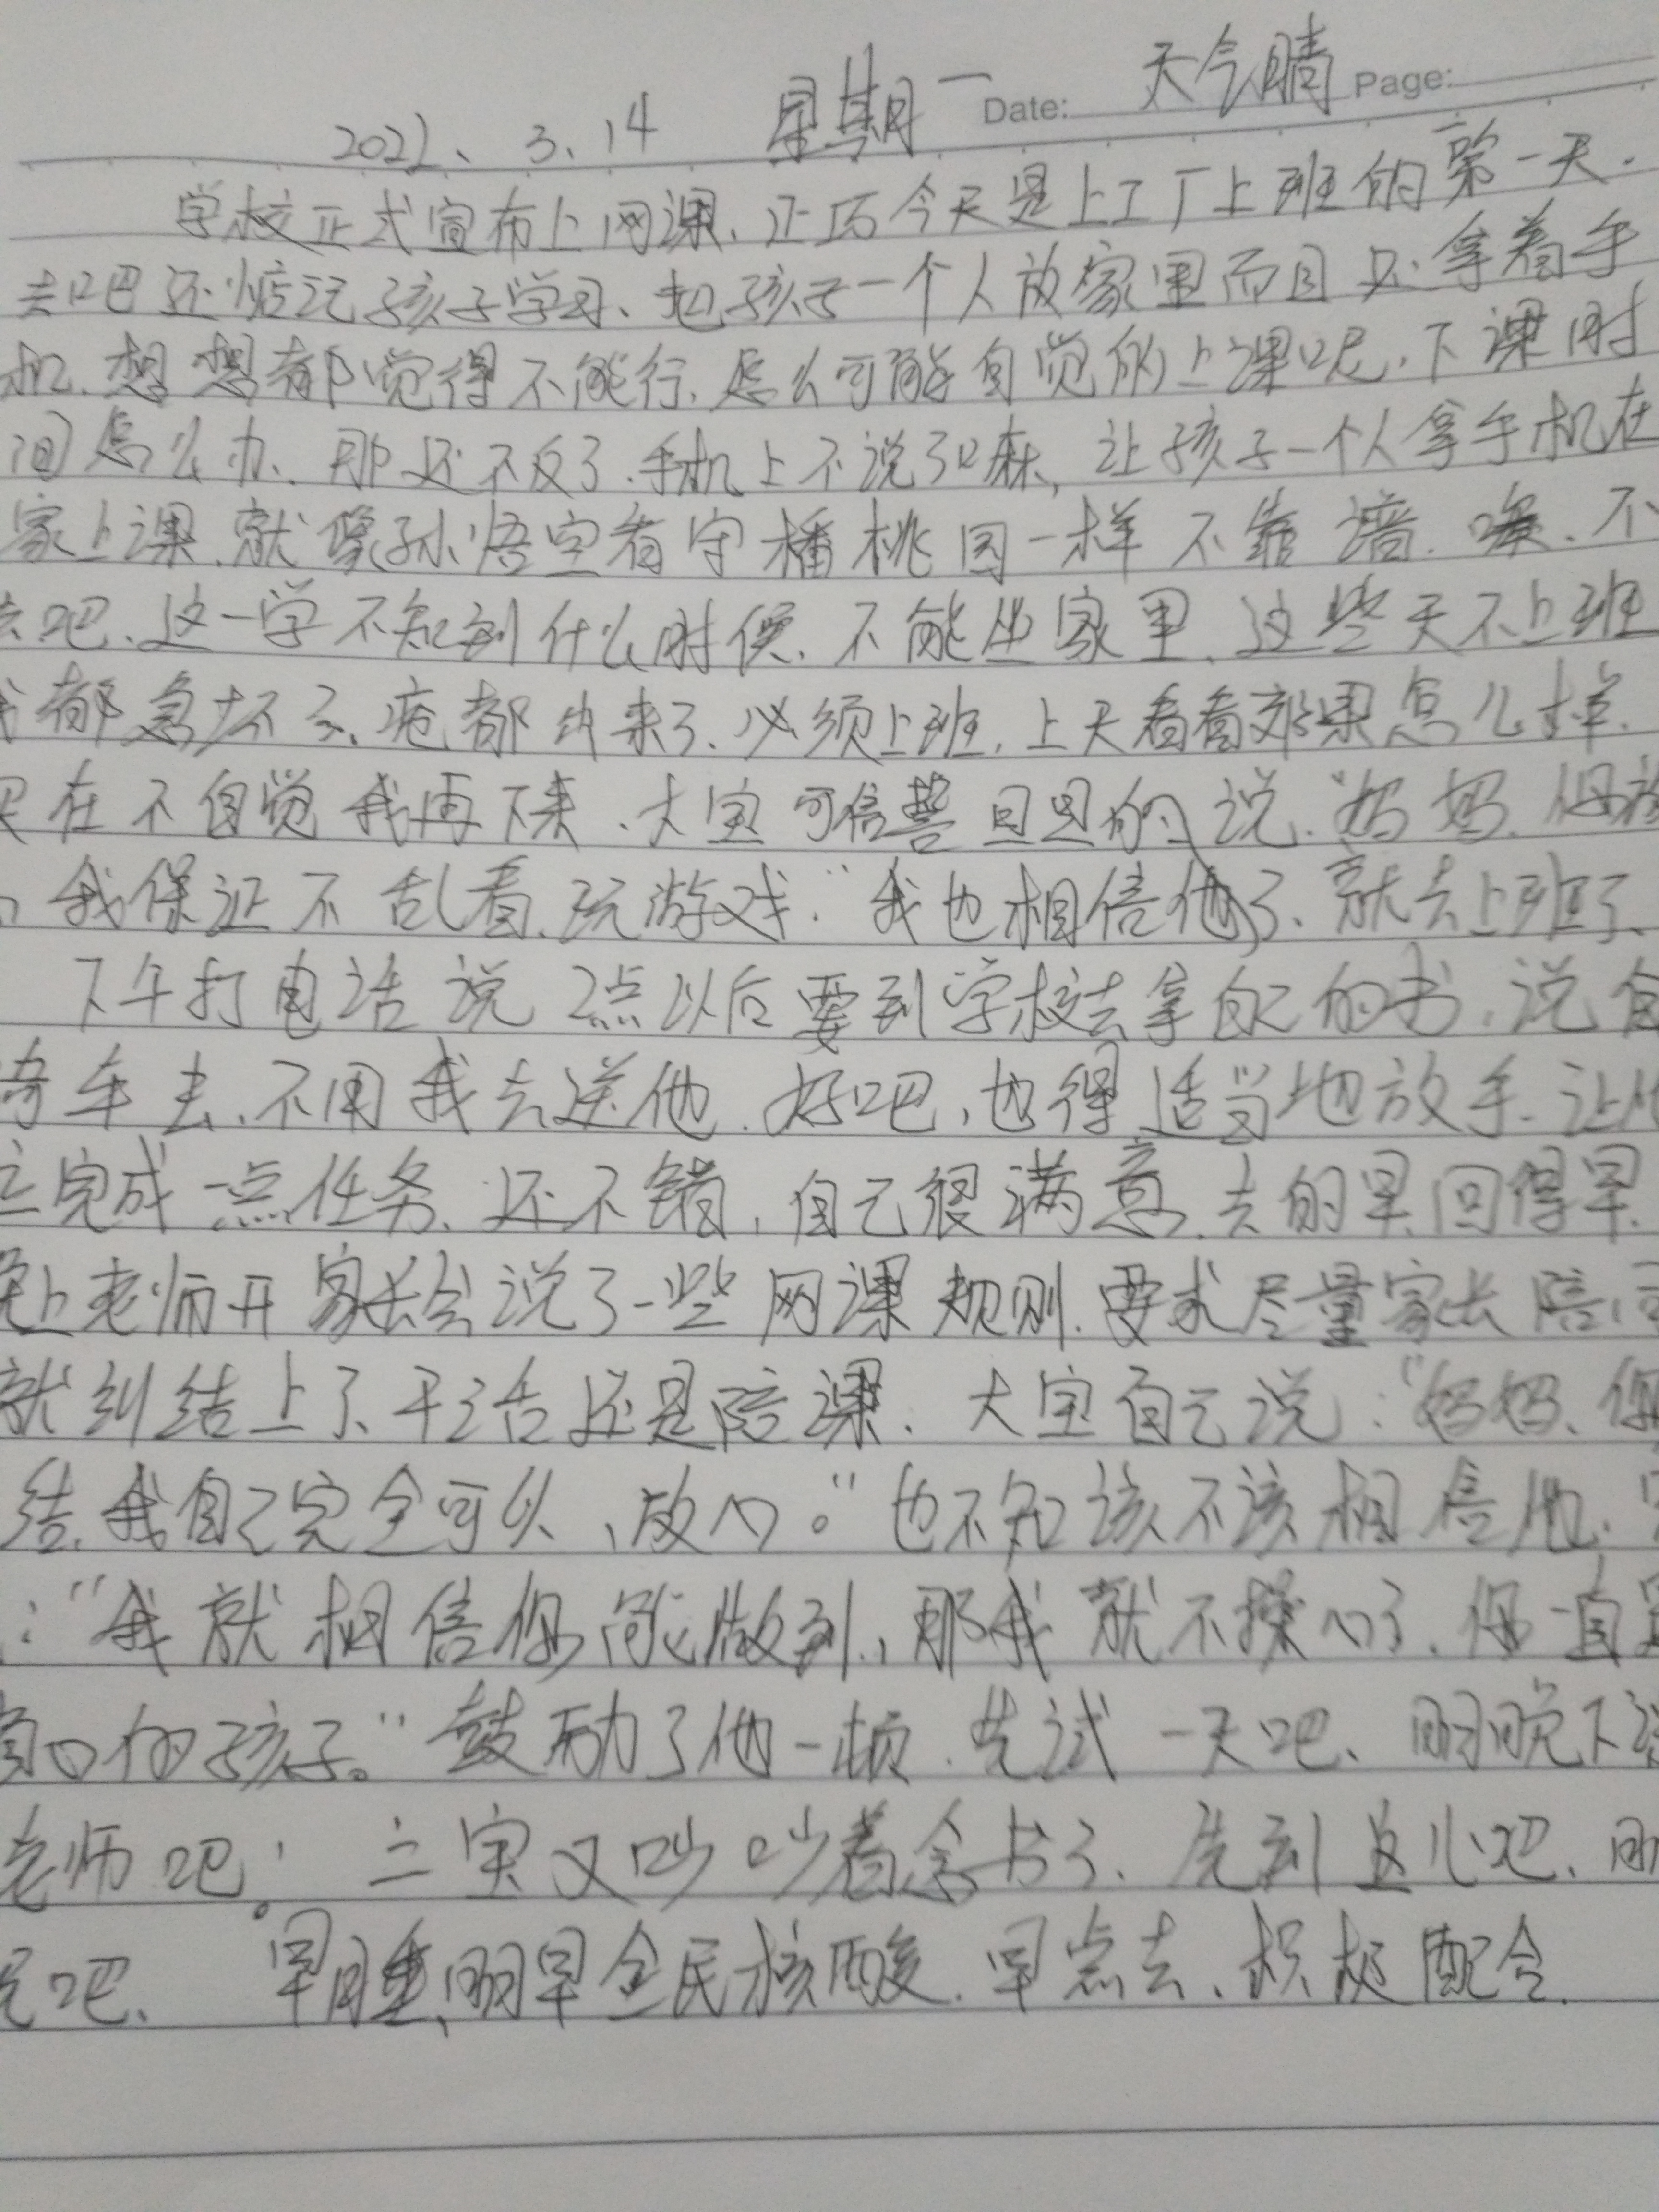 2022、3、14 星期一 Date: 天气晴 Page:
学校正式宣布上网课、正巧今天是上工厂上班的第一天.
去吧还惦记孩子学习、把孩子一个人放家里而且只拿着手
机.想想都觉得不能行.怎么可能自觉的上课呢.下课时
间怎么办、那还不反了.手机上不说了嘛,让孩子一个人拿手机在
家上课.就像孙悟空看守播桃园一样不靠谱.唉.不
去吧、这一学不知到什么时侯.不能坐家里、这些天不上班
我都急坏了.疮都出来了.必须上班.上天看看效果怎么样.
实在不自觉我再下来.大宝可信誓旦旦的说."妈妈.你放
我保证不乱看.玩游戏."我也相信他了、就去上班了、
下午打电话说2点以后要到学校去拿自己的书.说自
骑车去、不用我去送他.好吧,也得适当地放手.让他
立完成一点任务.还不错,自己很满意.去的早.回得早.
晚上老师开家长会说了一些网课规则.要求尽量家长陪同
就纠结上了、干活还是陪课.大宝自己说:"妈妈、你
结.我自己完全可以、放心。"也不知该不该相信他.
:"我就相信你能做到.,那我就不操心了.你一直是
的孩子。"鼓励了他一顿.先试一天吧、明晚下
老师吧。二宝又吵吵着念书了.先到这儿吧、明
吧、早睡、明早全民核酸.早点去、积极配合.